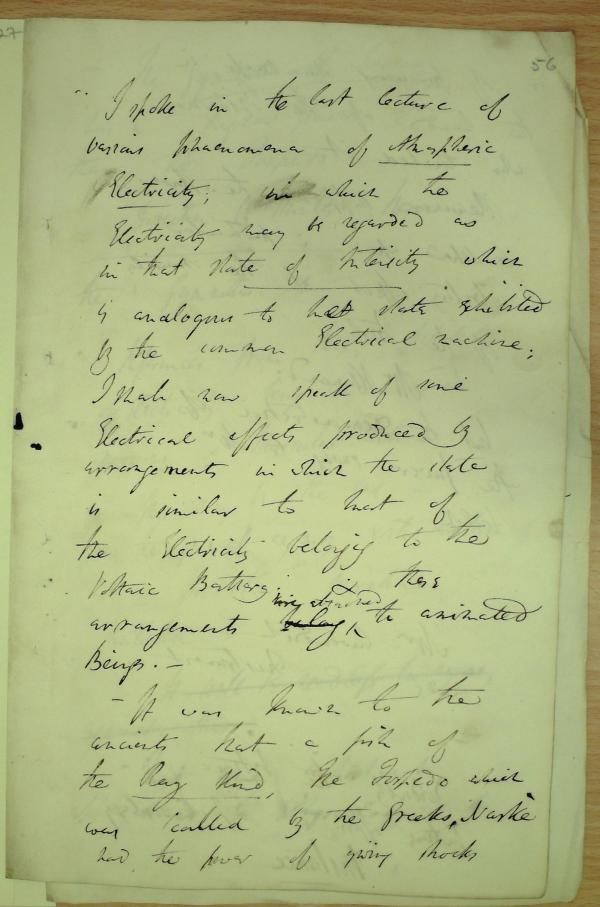 27
56
" I spoke in the last lecture of
various phaenomena of Atmospheric
Electricity; in which the
Electricity may be regarded as
in that state of Intensity which
is analogous to that state exhibited
by the common Electrical machine;
I shall now speak of some
Electrical effects produced by
arrangements in which the state
is similar to that of
the Electricity belonging to the
Voltaic Battery; these
being attached
arrangements belong to animated
Beings. —
— It was known to the
ancients that a fish of
the Ray Kind, the Torpedo which
was called by the Greeks, Narke
had the power of giving shocks